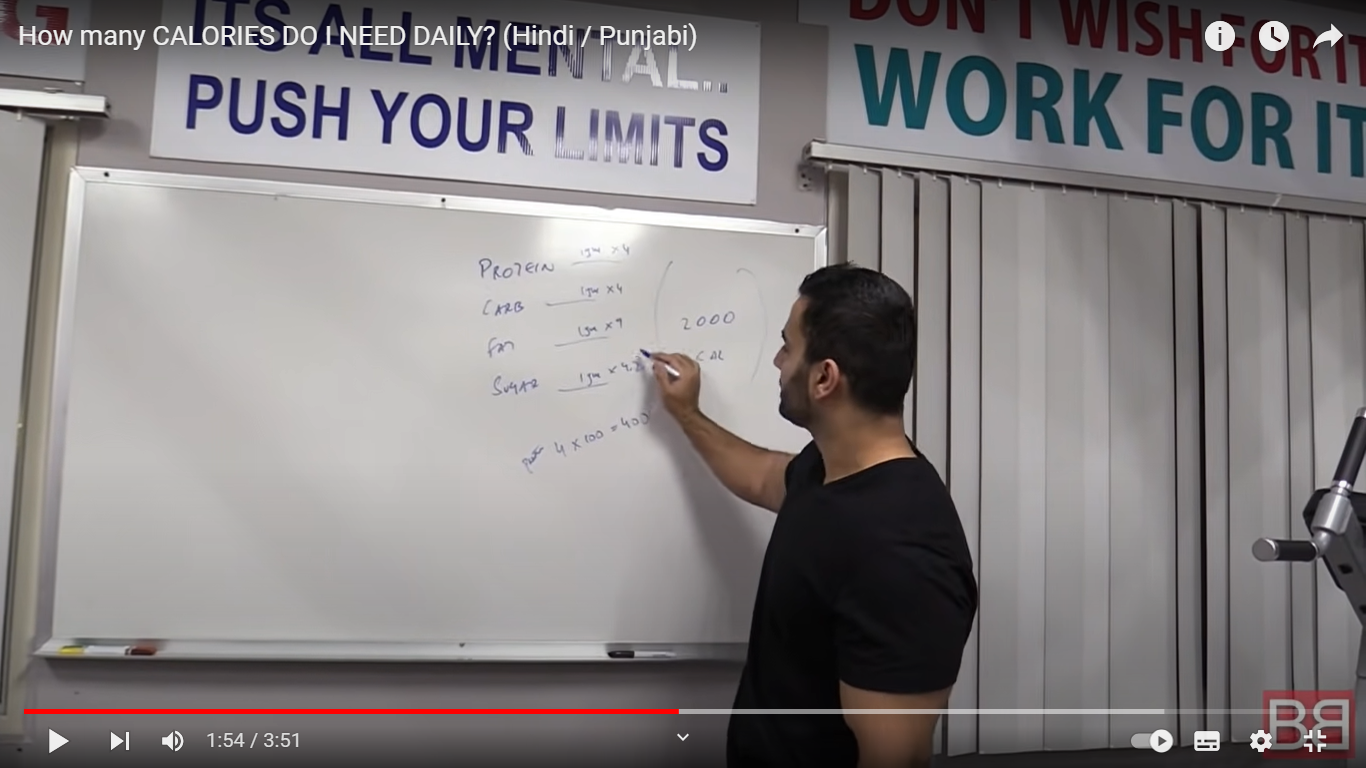 How many CALORIES DO I NEED DAILY? (Hindi / Punjabi)
G
ITS ALL MENTAL..
PUSH YOUR LIMITS
DON'T WISH FOR IT
WORK FOR IT
PROTEIN 1gm x 4
CARB 1gm x 4
FAT 1gm x 9
SUGAR 1gm x 4.2
2000
CAL
4 x 100 = 400
1:54 / 3:51
BB